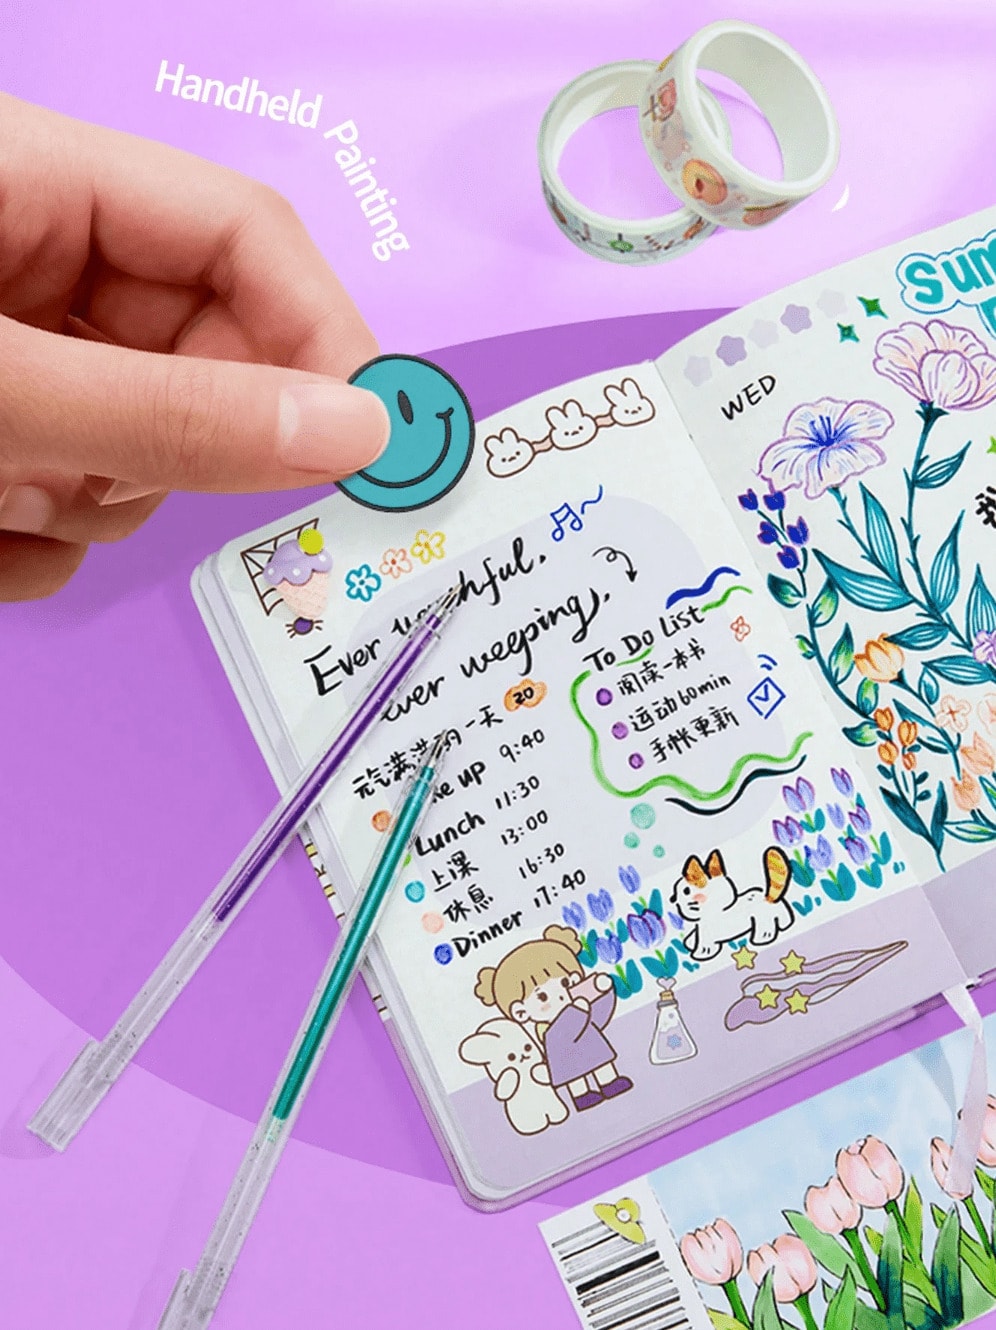 Handheld
Painting
Sun
WED
Ever
Ever weeping,
To Do List
阅读一本书
运动60min
手帐更新
元气满满的一天 20
up 9:40
Lunch 11:30
上课 13:00
休息 16:30
Dinner 17:40